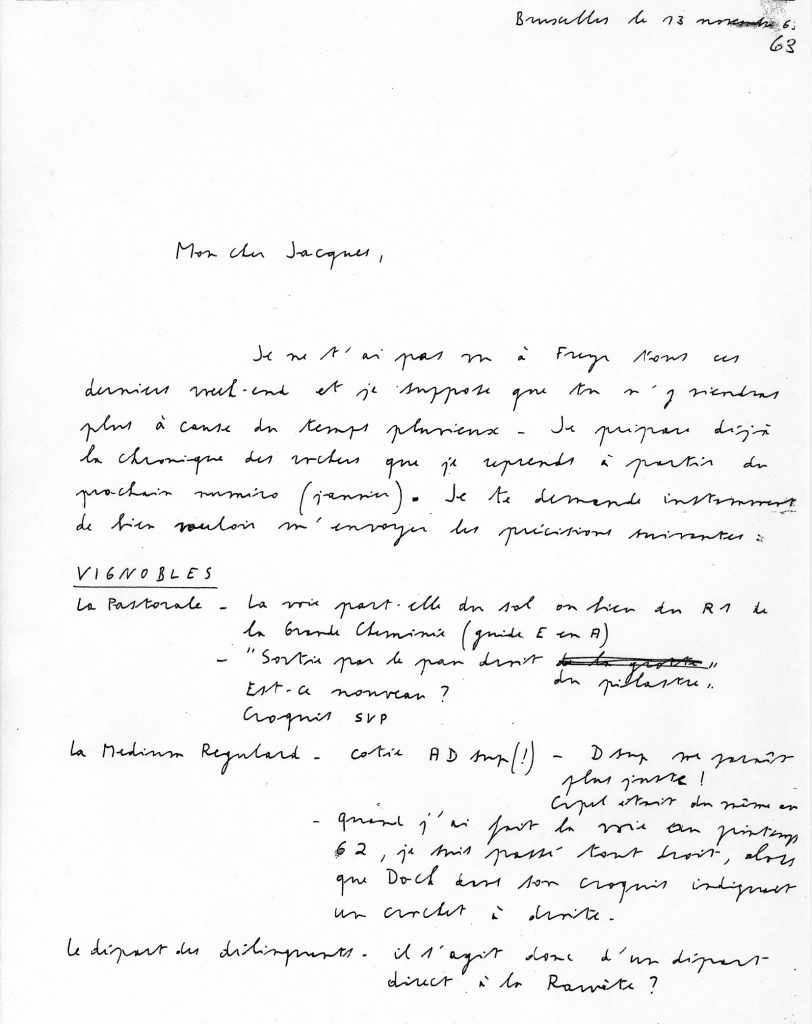 Bruxelles le 13 novembre 63
63
Mon cher Jacques,
Je ne t'ai pas vu à Freyr tous ces
derniers week-end et je suppose que tu n'y viendras
plus à cause du temps pluvieux - Je prépare déjà
la chronique des rochers que je reprends à partir du
prochain numéro (janvier). Je te demande instamment
de bien vouloir m'envoyer les précisions suivantes :
VIGNOBLES
La Pastorale - La voie part-elle du sol ou bien du R1 de
la Grande Cheminée (guide E en A)
- "Sortie par le pan droit de la grotte"
du pilastre".
Est-ce nouveau ?
Croquis SVP
La Medium Regulard - cotée AD sup (!) - D sup me paraît
plus juste !
Cipel était du même av
- quand j'ai fait la voie au printemps
62, je suis passé tout droit, alors
que Doch dans son croquis indiquait
un crochet à droite.
Le départ des délinquants - il s'agit donc d'un départ
direct à la Rawète ?